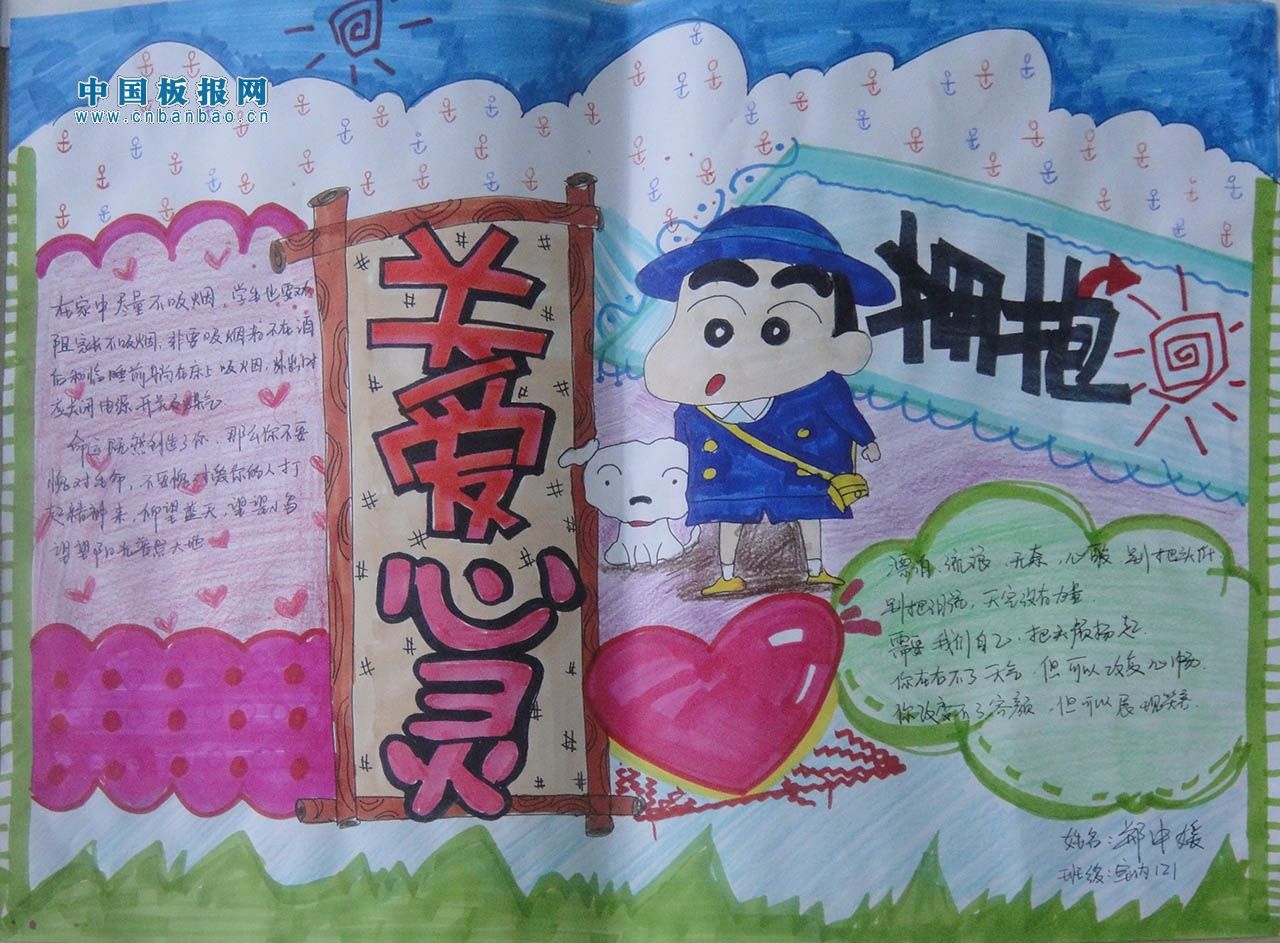 中国板报网
www.cnbanbao.cn
关爱心灵
拥抱
在家中尽量不吸烟,学生也要劝
阻家长不吸烟,非要吸烟者不在酒
后和临睡前躺在床上吸烟,外出时
要关闭电源开关和煤气
命运既然创造了你,那么你不要
愧对生命,不要愧对爱你的人打
起精神来,仰望蓝天,望望小鸟
渴望阳光普照大地
漂泊,流浪,无奈,心酸,别把头低
别把泪流,天空没有力量
需要我们自己,把头颅扬起.
你左右不了天气,但可以改变心情.
你改变不了容颜,但可以展现笑容.
姓名:郑中媛
班级:室内121